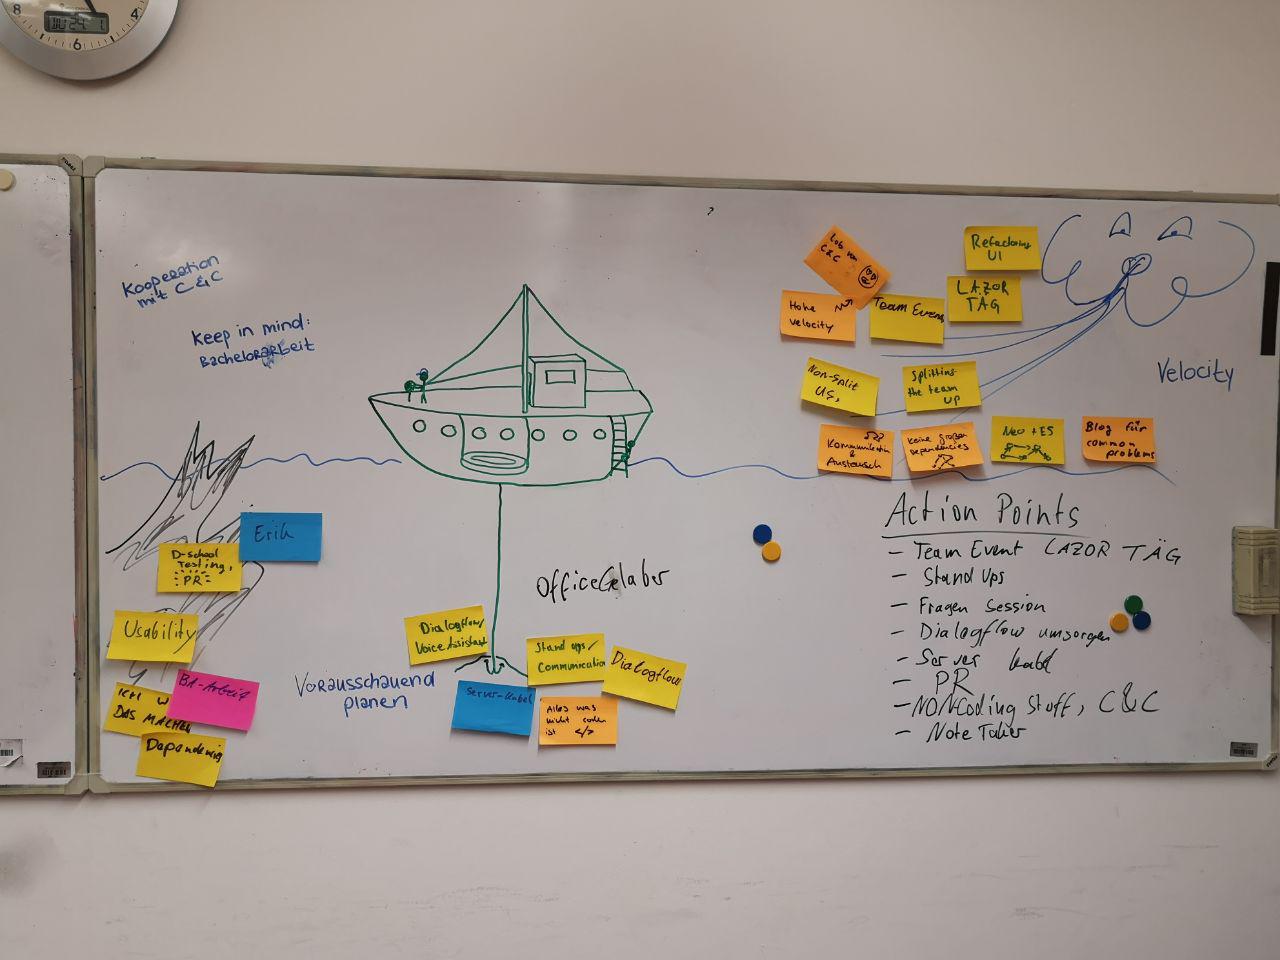 8
6
4
Kooperation
mit C&C
Keep in mind:
Bachelorarbeit
?
Lob von
C&C
Refactoring
UI
LAZOR
TÄG
Hohe
velocity
Team Event
Velocity
Non-Split
US,
Splitting
the team
up
Kommunikation
&
Austausch
keine großen
Dependencies
Neo + ES
Blog für
common
problems
Erik
D-school
Testing,
PR
Usability
BA-Arbeit
ICH
DAS MACHEN
Dependencies
Vorausschauend
planen
OfficeGelaber
Dialogflow/
Voice Assistant
Stand ups/
Communication
Dialogflow
Server-Kabel
Alles was
nicht coden
ist </>
Action Points
- Team Event LAZOR TÄG
- Stand Ups
- Fragen Session
- Dialogflow umsorgen
- Server Kabel
- PR
- NONCoding Stuff, C&C
- Note Taker